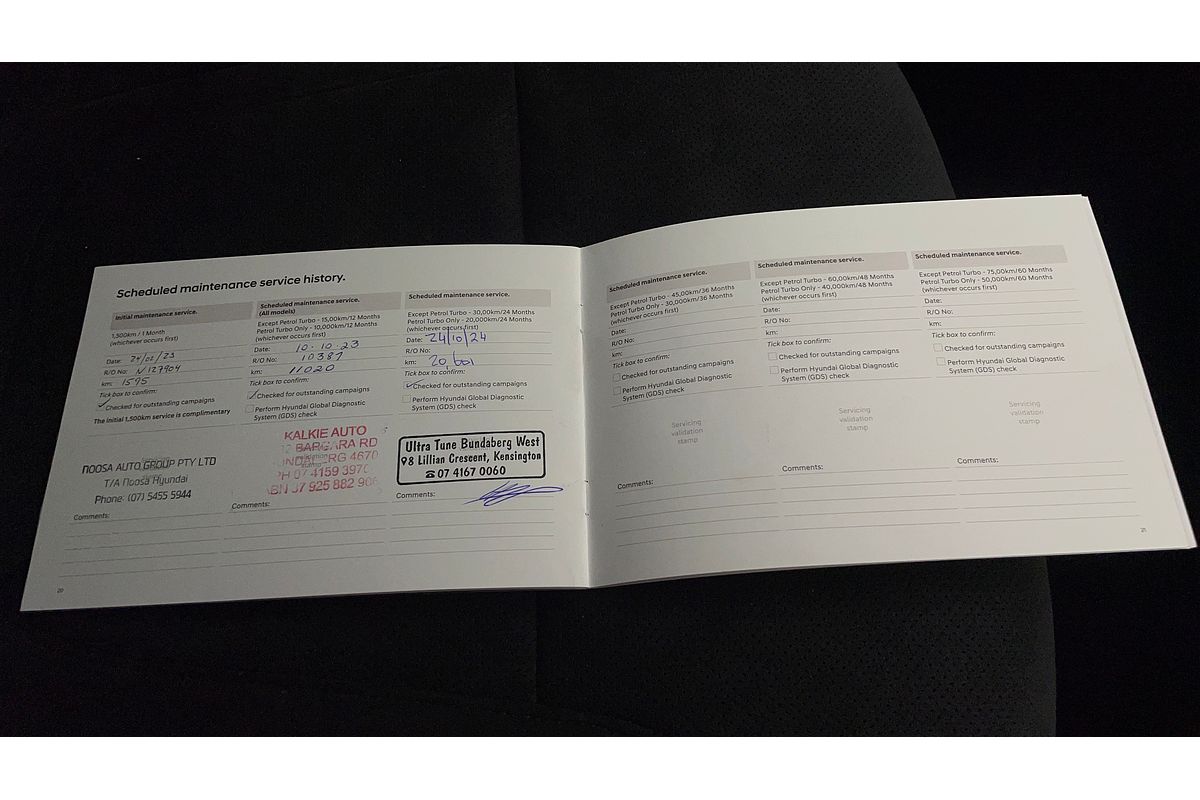 Scheduled maintenance service history.
Initial maintenance service.
1,500km / 1 Month
(whichever occurs first)
Date: 24/02/23
R/O No: N127904
km: 1595
Tick box to confirm:
Checked for outstanding campaigns
The initial 1,500km service is complimentary
NOOSA AUTO GROUP PTY LTD
T/A Noosa Hyundai
Phone: (07) 5455 5944
Comments:
20
Scheduled maintenance service.
(All models)
Except Petrol Turbo - 15,00km/12 Months
Petrol Turbo Only - 10,000km/12 Months
(whichever occurs first)
Date: 10.10.23
R/O No: 10387
km: 11020
Tick box to confirm:
Checked for outstanding campaigns
Perform Hyundai Global Diagnostic
System (GDS) check
KALKIE AUTO
BARGARA RD
RG 4670
PH 07 4159 397
ABN 37 925 882 906
Comments:
Scheduled maintenance service.
Except Petrol Turbo - 30,00km/24 Months
Petrol Turbo Only - 20,000km/24 Months
(whichever occurs first)
Date: 24/10/24
R/O No:
km: 20 601
Tick box to confirm:
Checked for outstanding campaigns
Perform Hyundai Global Diagnostic
System (GDS) check
Ultra Tune Bundaberg West
98 Lillian Crescent, Kensington
☎ 07 4167 0060
Comments:
Scheduled maintenance service.
Except Petrol Turbo - 45,00km/36 Months
Petrol Turbo Only - 30,000km/36 Months
(whichever occurs first)
Date:
R/O No:
km:
Tick box to confirm:
Checked for outstanding campaigns
Perform Hyundai Global Diagnostic
System (GDS) check
Servicing
validation
stamp
Comments:
Scheduled maintenance service.
Except Petrol Turbo - 60,00km/48 Months
Petrol Turbo Only - 40,000km/48 Months
(whichever occurs first)
Date:
R/O No:
km:
Tick box to confirm:
Checked for outstanding campaigns
Perform Hyundai Global Diagnostic
System (GDS) check
Servicing
validation
stamp
Comments:
Scheduled maintenance service.
Except Petrol Turbo - 75,00km/60 Months
Petrol Turbo Only - 50,000km/60 Months
(whichever occurs first)
Date:
R/O No:
km:
Tick box to confirm:
Checked for outstanding campaigns
Perform Hyundai Global Diagnostic
System (GDS) check
Servicing
validation
stamp
Comments:
21